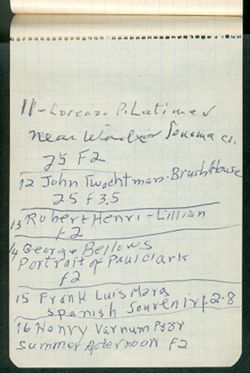 11 - Lorenzo P. Latimer
Near Windsor Sonoma Co.
25 F2
12 John Twachtman - Brush House
25 f3.5
13 Robert Henri - Lillian
f2
14 George Bellows
Portrait of Paul Clark
f2
15 Frank Luis Mora
Spanish Souvenir f2.8
16 Henry Varnum Poor
Summer Afternoon f2